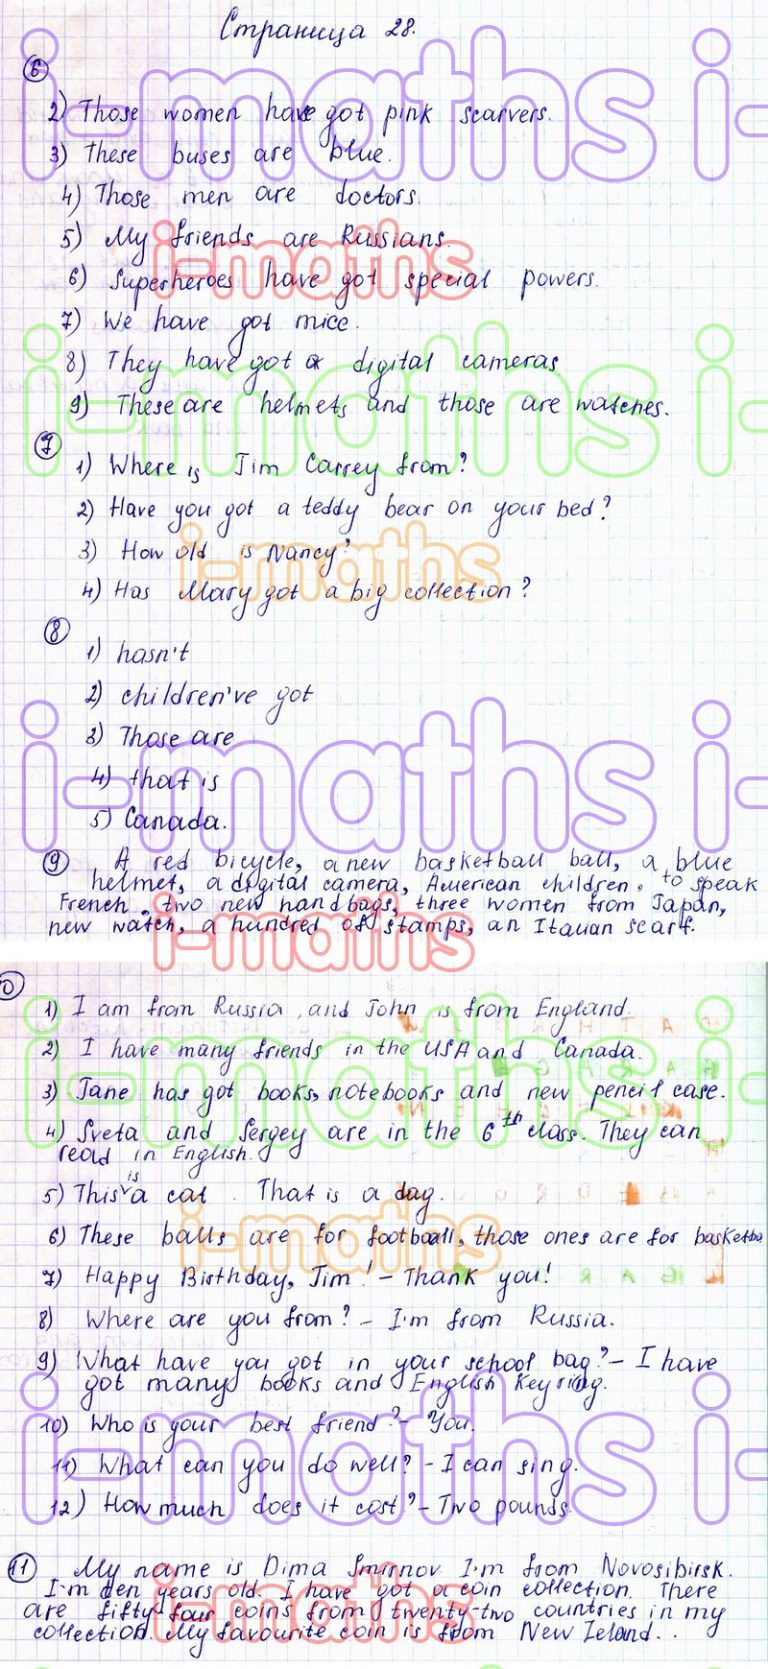 Страница 28.
6
2) Those women have got pink scarvers.
3) These buses are blue.
4) Those men are doctors.
5) My friends are Russians.
6) Superheroes have got special powers.
7) We have got mice.
8) They have got digital cameras
9) These are helmets and those are watches.
7
1) Where is Jim Carrey from?
2) Have you got a teddy bear on your bed?
3) How old is Nancy?
4) Has Mary got a big collection?
8
1) hasn't
2) children've got
3) Those are
4) that is
5) Canada.
9 A red bicycle, a new basketball ball, a blue
helmet, a digital camera, American children, to speak
French, two new handbags, three women from Japan,
new watch, a hundred of stamps, an Italian scarf.
0
1) I am from Russia, and John is from England.
2) I have many friends in the USA and Canada.
3) Jane has got books, notebooks and new pencil case.
4) Sveta and Sergey are in the 6th class. They can
read in English.
5) This is a cat. That is a dag.
6) These balls are for football, those ones are for basketba
7) Happy Birthday, Jim! - Thank you!
8) Where are you from? - I'm from Russia.
9) What have you got in your school bag? - I have
got many books and English keyring.
10) Who is your best friend? - You.
11) What can you do well? - I can sing.
12) How much does it cost? - Two pounds.
11 My name is Dima Smirnov. I'm from Novosibirsk.
I'm ten years old. I have got a coin collection. There
are fifty-four coins from twenty-two countries in my
collection. My favourite coin is from New Zeland...
i-maths